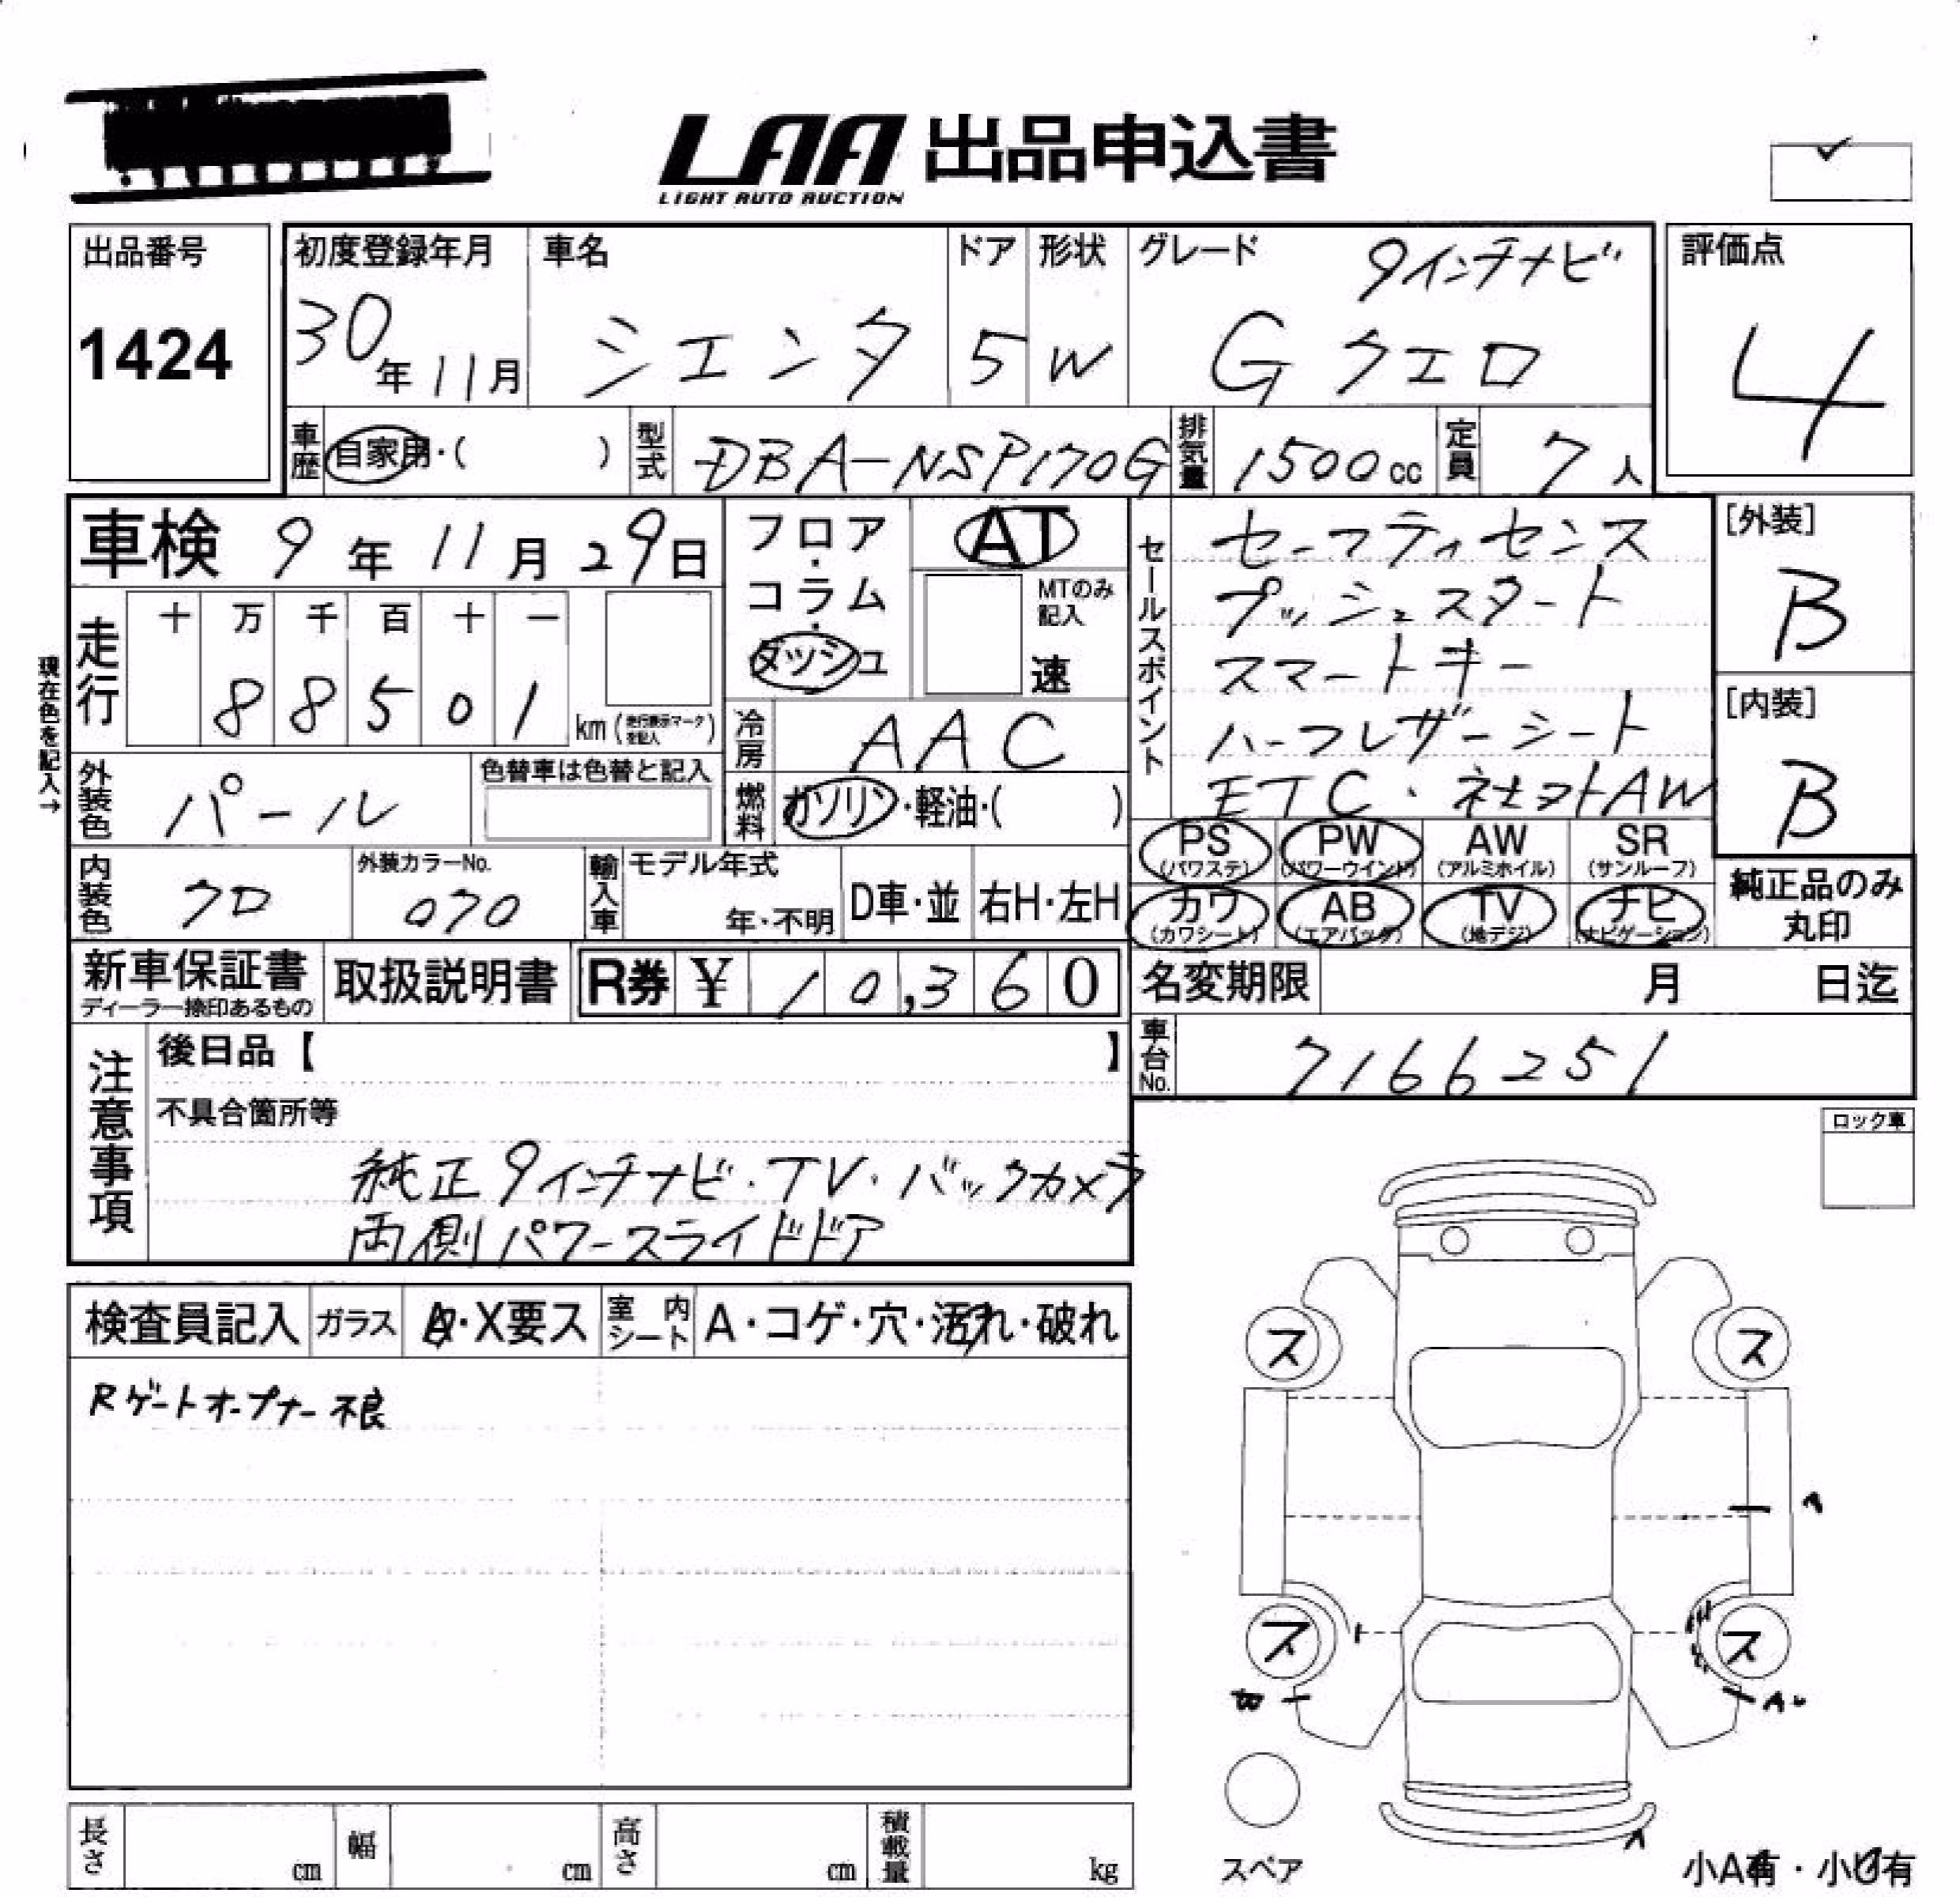 LAA 出品申込書
LIGHT AUTO AUCTION
出品番号
1424
初度登録年月
30年11月
車名
シエンタ
ドア
5
形状
W
グレード
9インチナビ
G クエロ
評価点
4
車歴 自家用・( )
型式 DBA-NSP170G
排気量 1500cc
定員 7人
車検 9年11月29日
フロア・コラム・ダッシュ
AT
MTのみ記入
速
セールスポイント
セーフティセンス
プッシュスタート
スマートキー
ハーフレザーシート
ETC・社外AW
[外装]
B
[内装]
B
現在色を記入→
走行
十 万 千 百 十 一
8 8 5 0 1
km(走行表示マークを記入)
冷房 AAC
外装色 パール
色替車は色替と記入
燃料 ガソリン・軽油・( )
PS (パワステ)
PW (パワーウインド)
AW (アルミホイル)
SR (サンルーフ)
内装色 クロ
外装カラーNo.
070
輸入車
モデル年式
年・不明
D車・並
右H・左H
カワ (カワシート)
AB (エアバッグ)
TV (地デジ)
ナビ (ナビゲーション)
純正品のみ
丸印
新車保証書
ディーラー捺印あるもの
取扱説明書
R券 ¥ 10,360
名変期限 月 日迄
車台No. 7166251
注意事項
後日品【 】
不具合箇所等
純正9インチナビ・TV・バックカメラ
両側パワースライドドア
ロック車
検査員記入
ガラス
・X要ス
室内シート
A・コゲ・穴・汚れ・破れ
Rゲートオープナー不良
ス
ス
ス
ス
A
スペア
小A有・小U有
長さ cm
幅 cm
高さ cm
積載量 kg